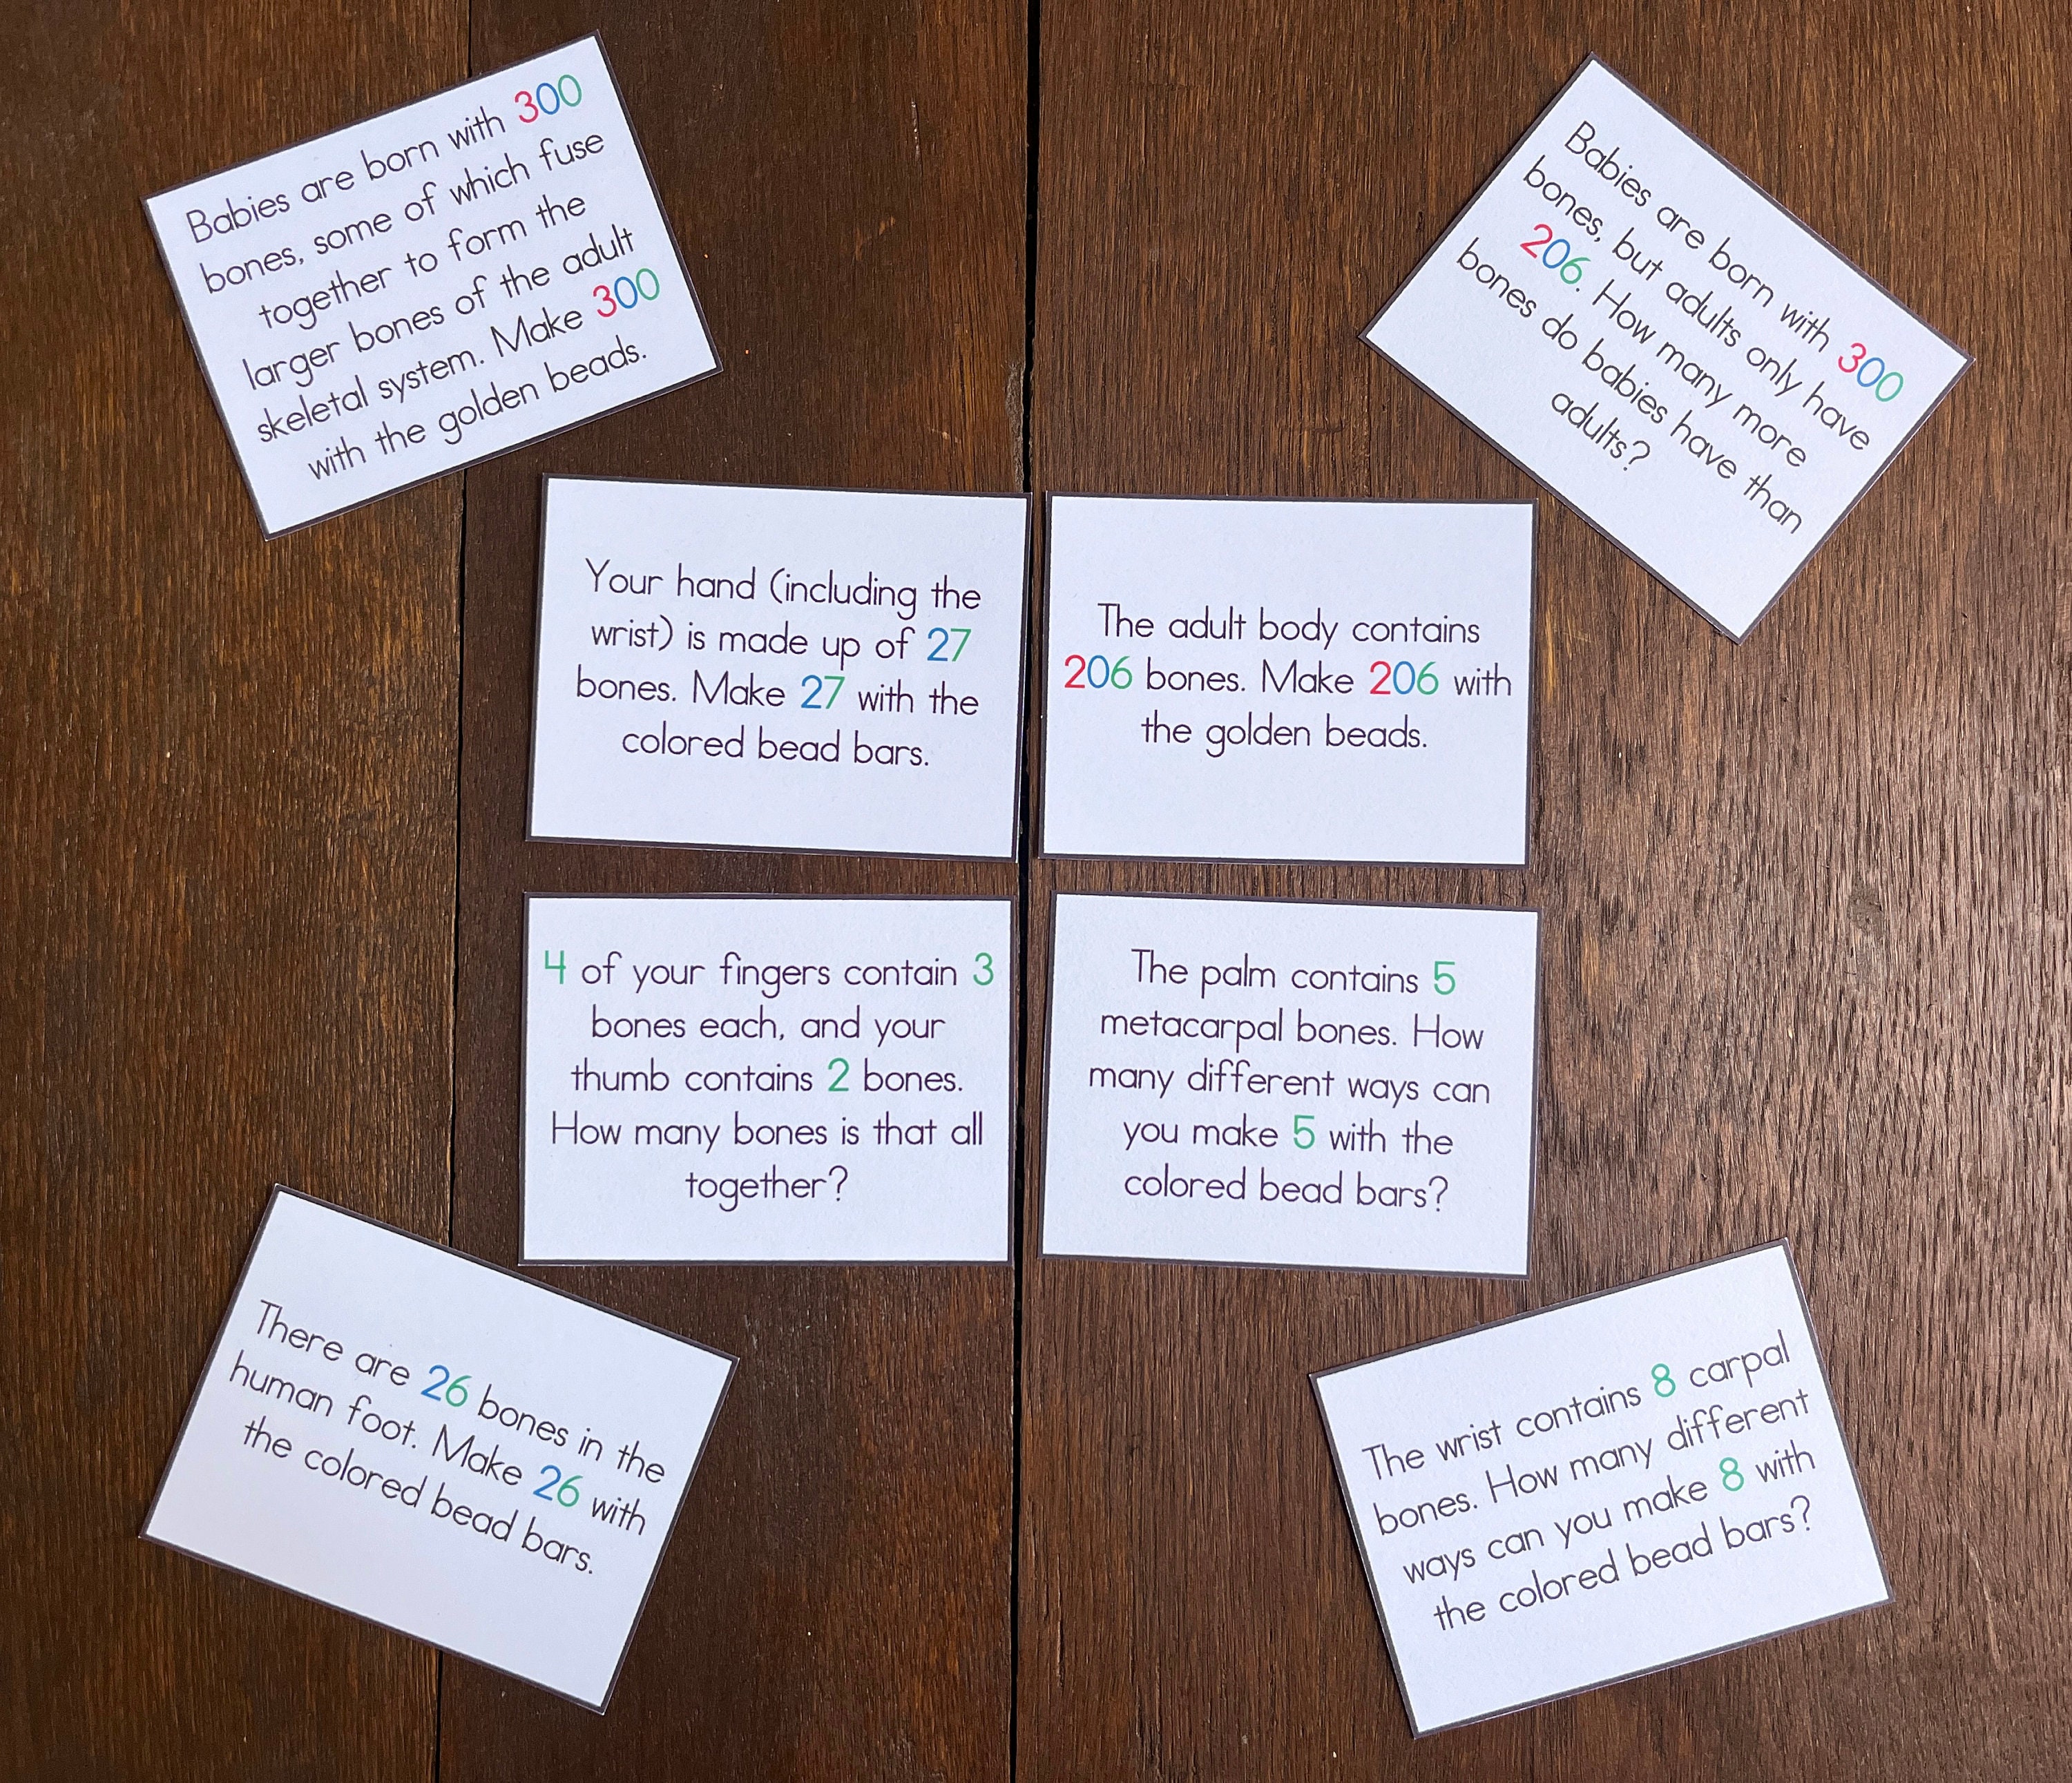 Babies are born with 300
bones, some of which fuse
together to form the
larger bones of the adult
skeletal system. Make 300
with the golden beads.
Babies are born with 300
bones, but adults only have
206. How many more
bones do babies have than
adults?
Your hand (including the
wrist) is made up of 27
bones. Make 27 with the
colored bead bars.
The adult body contains
206 bones. Make 206 with
the golden beads.
4 of your fingers contain 3
bones each, and your
thumb contains 2 bones.
How many bones is that all
together?
The palm contains 5
metacarpal bones. How
many different ways can
you make 5 with the
colored bead bars?
There are 26 bones in the
human foot. Make 26 with
the colored bead bars.
The wrist contains 8 carpal
bones. How many different
ways can you make 8 with
the colored bead bars?